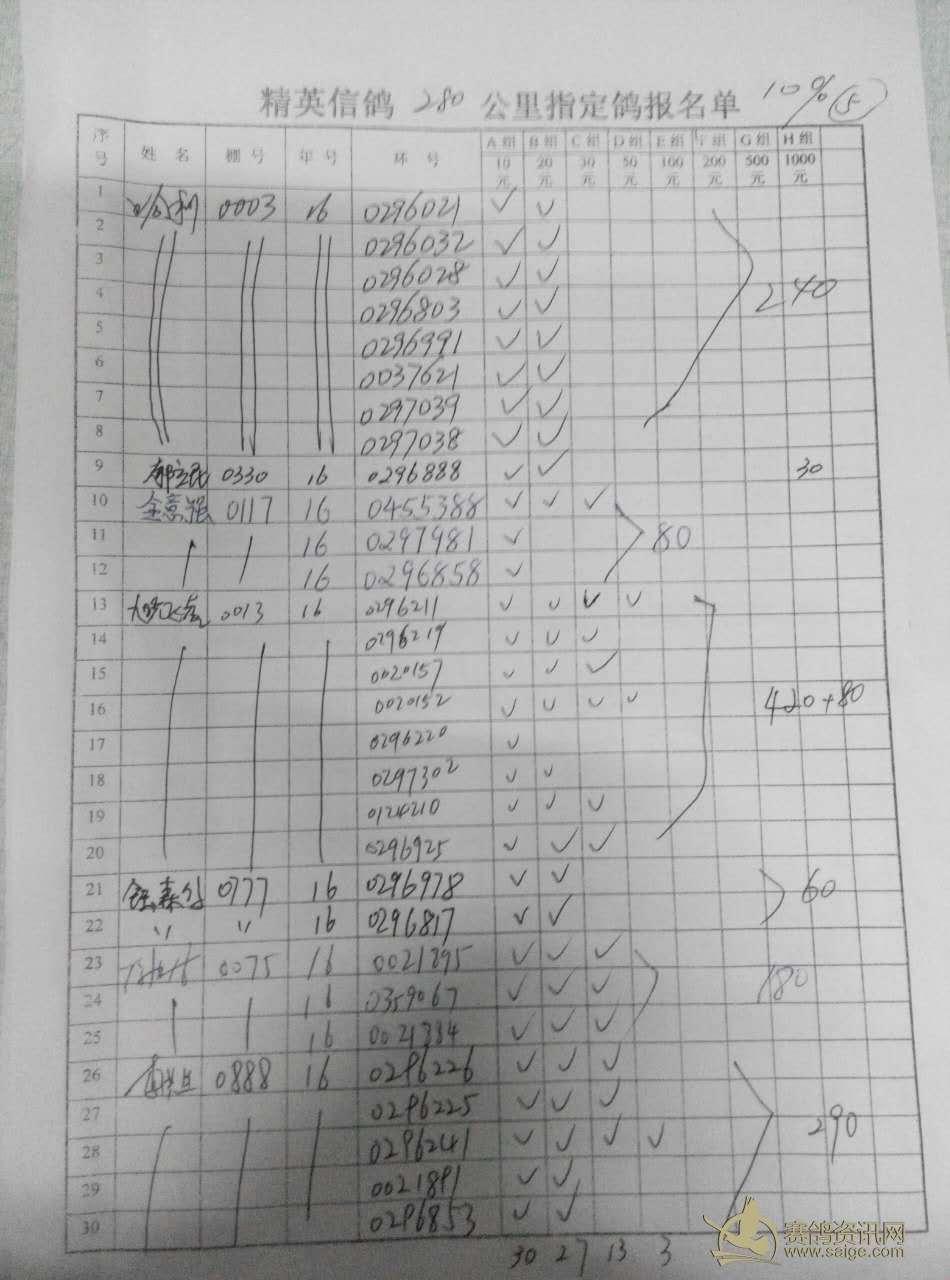 精英信鸽 280 公里指定鸽报名单 10% ⑤
序号 姓 名 棚 号 年 号 环 号 A组10元 B组20元 C组30元 D组50元 E组100元 F组200元 G组500元 H组1000元
1 0003 16 0296021 ✓ ✓
2 0296032 ✓ ✓
3 0296028 ✓ ✓
4 0296803 ✓ ✓ 240
5 0296991 ✓ ✓
6 0037621 ✓ ✓
7 0297039 ✓ ✓
8 0297038 ✓ ✓
9 0330 16 0296888 ✓ ✓ 30
10 0117 16 0455388 ✓ ✓ ✓
11 16 0297981 ✓ 80
12 16 0296858 ✓
13 0013 16 0296211 ✓ ✓ ✓ ✓
14 0296219 ✓ ✓ ✓
15 0020157 ✓ ✓ ✓
16 0020152 ✓ ✓ ✓ ✓ 420+80
17 0296220 ✓
18 0297302 ✓ ✓
19 0124210 ✓ ✓ ✓
20 0296925 ✓ ✓ ✓
21 0777 16 0296978 ✓ ✓ 60
22 〃 〃 16 0296817 ✓ ✓
23 0075 16 0021395 ✓ ✓ ✓
24 16 0359067 ✓ ✓ ✓ 180
25 16 0021384 ✓ ✓ ✓
26 0888 16 0296226 ✓ ✓ ✓
27 0296225 ✓ ✓ ✓
28 0296241 ✓ ✓ ✓ ✓ 290
29 0021891 ✓ ✓
30 0296853 ✓ ✓
30 27 13 3
赛鸽资讯网
www.saige.com